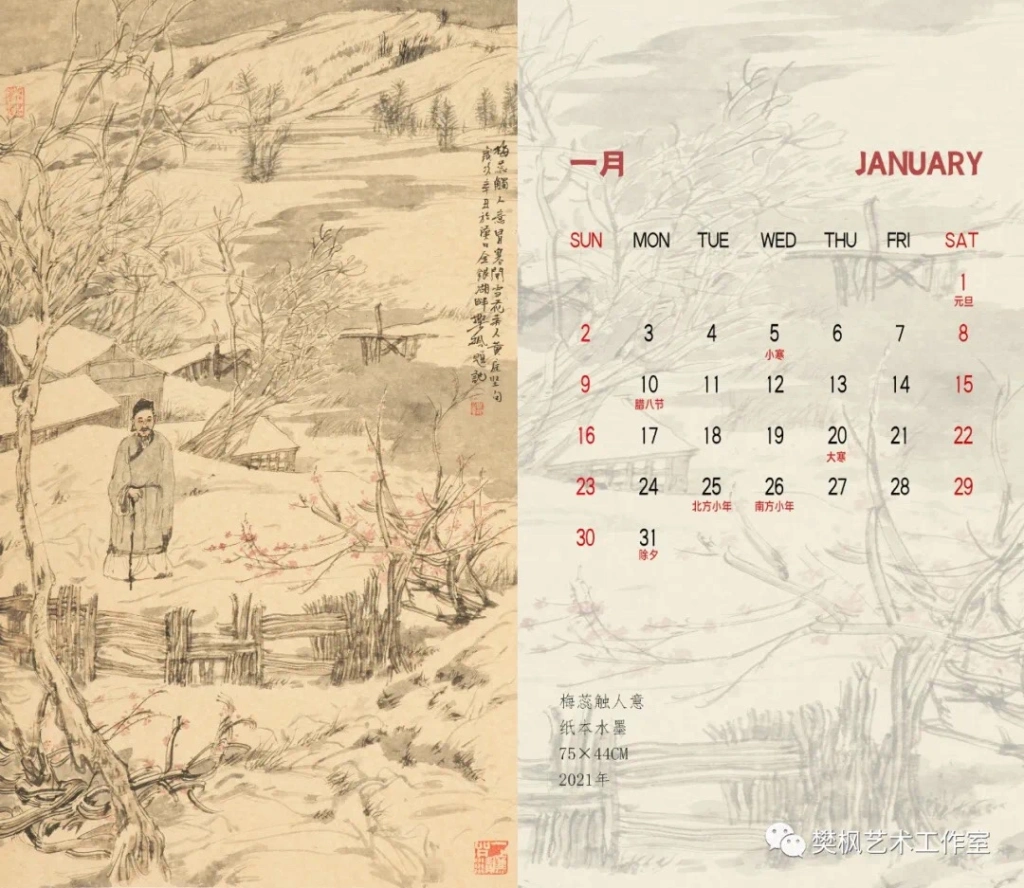 梅蕊觸人意冒寒開雪花宋人黄庭坚句
歲次辛丑於漢口金銀湖畔樊楓題記
一月 JANUARY
SUN MON TUE WED THU FRI SAT
1
元旦
2 3 4 5 6 7 8
小寒
9 10 11 12 13 14 15
腊八节
16 17 18 19 20 21 22
大寒
23 24 25 26 27 28 29
北方小年 南方小年
30 31
除夕
梅蕊触人意
纸本水墨
75×44CM
2021年
樊枫艺术工作室